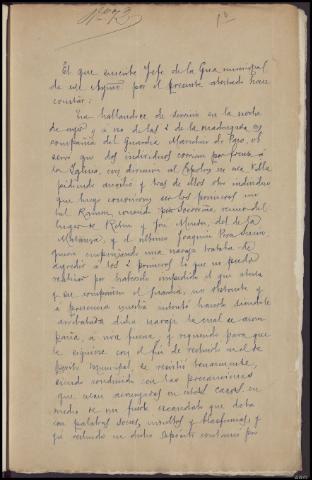 Nº 92 1º
El que suscribe Jefe de la Guardia municipal
de este Ayunt. por el presente atestado hace
constar:
Que hallandose de servicio en la noche
de ayer y á eso de las 2 de la madrugada en
compañia del Guardia Marcelino de Pazo, ob
servo que dos individuos corrian por frente á
la Iglesia, con direccion al en esa Villa
pidiendo auxilio y tras de ellos otro individuo
que luego conocieron ser los primeros un
tal Ramon, conocido por vecino del
lugar de y José Mendez, del de la
Matanza, y el ultimo Joaquin Pera
quien empuñando una navaja trataba de
agredir á los 2 primeros lo que no pudo
realizar por haberselo impedido el que atesta
y su compañero el Guardia, no obstante y
á presencia nuestra intentó hacerlo siendole
arrebatada dicha navaja la cual se acom
paña, á viva fuerza y requerido para que
le siguiese con el fin de recluirlo en el de
posito municipal, se resistió tenazmente,
siendo conducido con las precauciones
que sean aconsejadas en estos casos, en
medio de un fuerte escandalo que daba
con palabras soeces, insultos y blasfemias, y
ya recluido en dicho deposito continuó por